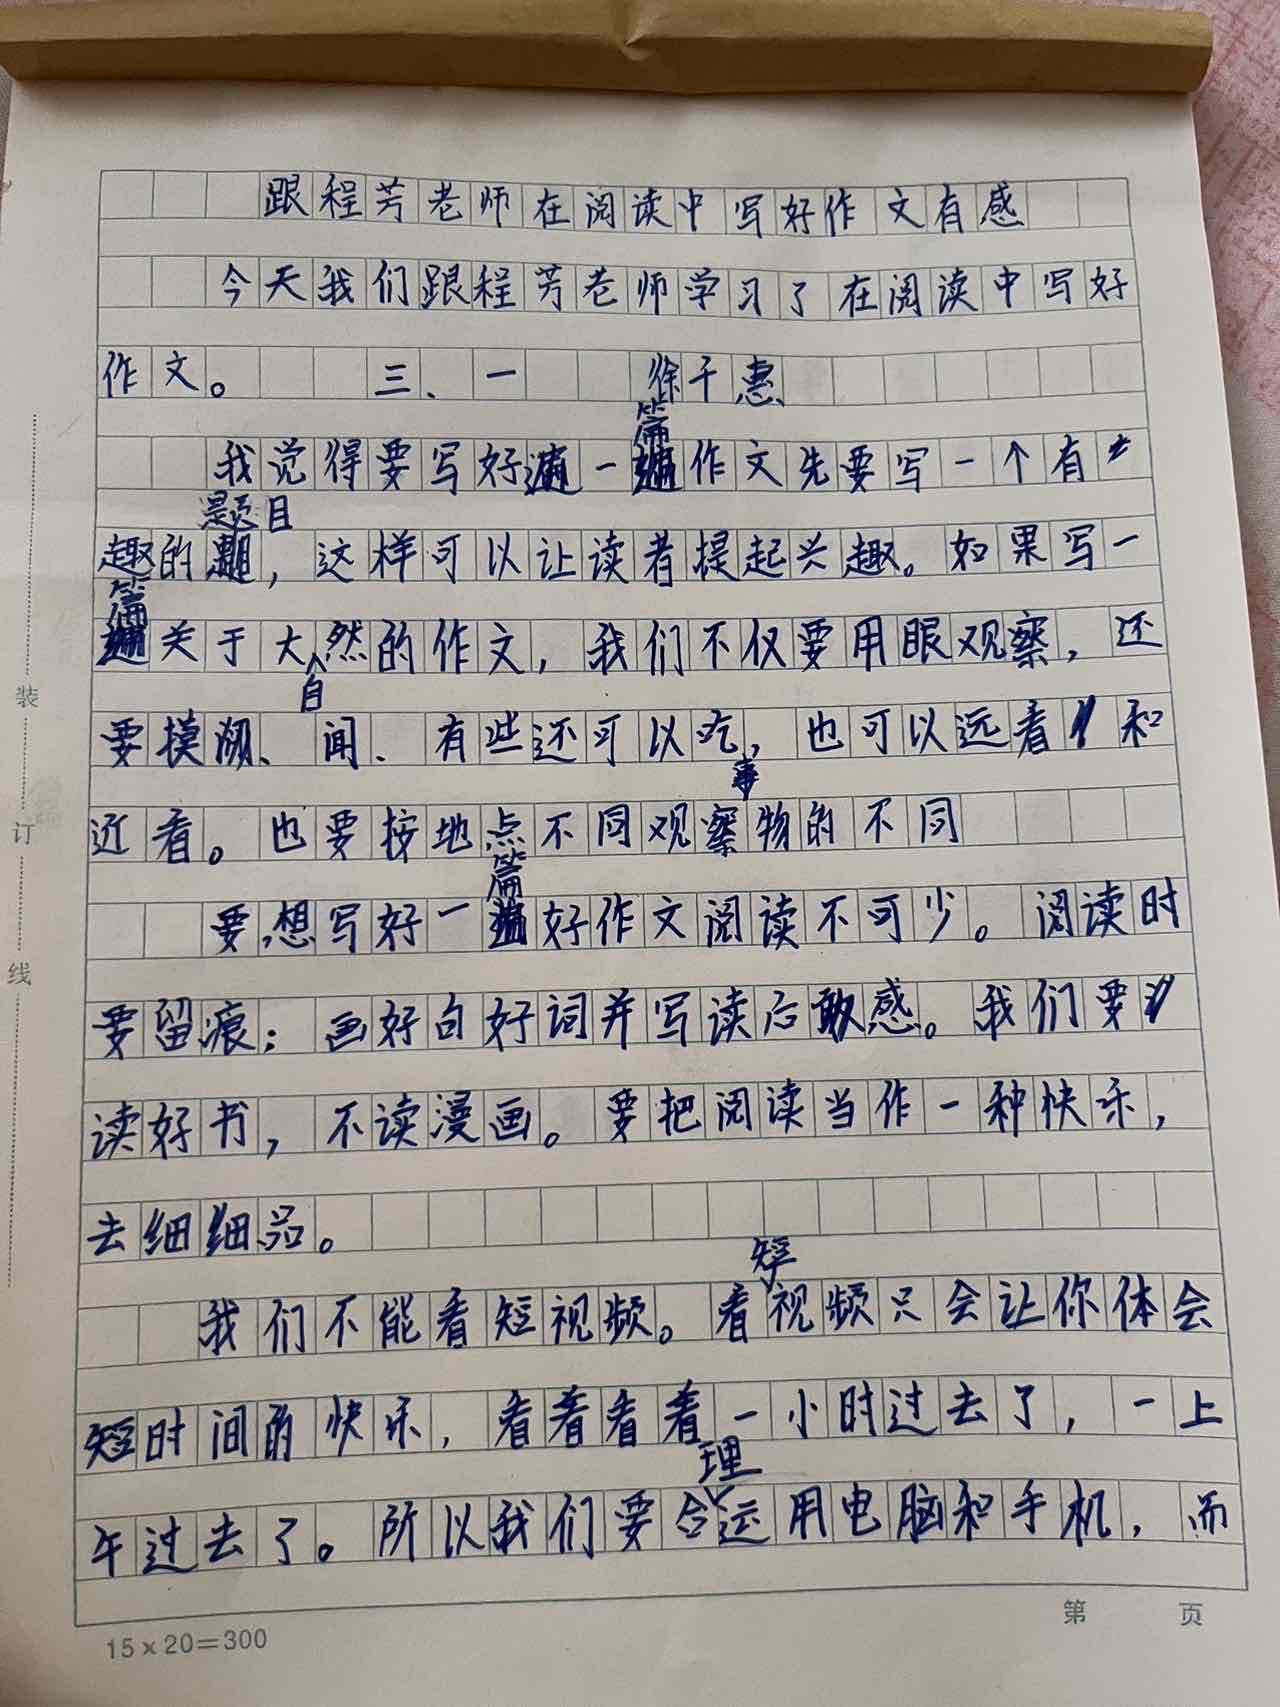 跟程芳老师在阅读中写好作文有感
今天我们跟程芳老师学习了在阅读中写好
作文。 三、一 徐千惠
我觉得要写好一篇作文先要写一个有
趣的题目，这样可以让读者提起兴趣。如果写一
篇关于大自然的作文，我们不仅要用眼观察，还
要摸、闻、有些还可以吃，也可以远看和
近看。也要按地点不同观察事物的不同
要想写好一篇好作文阅读不可少。阅读时
要留痕；画好句好词并写读后感。我们要
读好书，不读漫画。要把阅读当作一种快乐，
去细细品。
我们不能看短视频。看短视频只会让你体会
短时间的快乐，看着看着一小时过去了，一上
午过去了。所以我们要合理运用电脑和手机，而
装
订
线
第 页
15×20=300